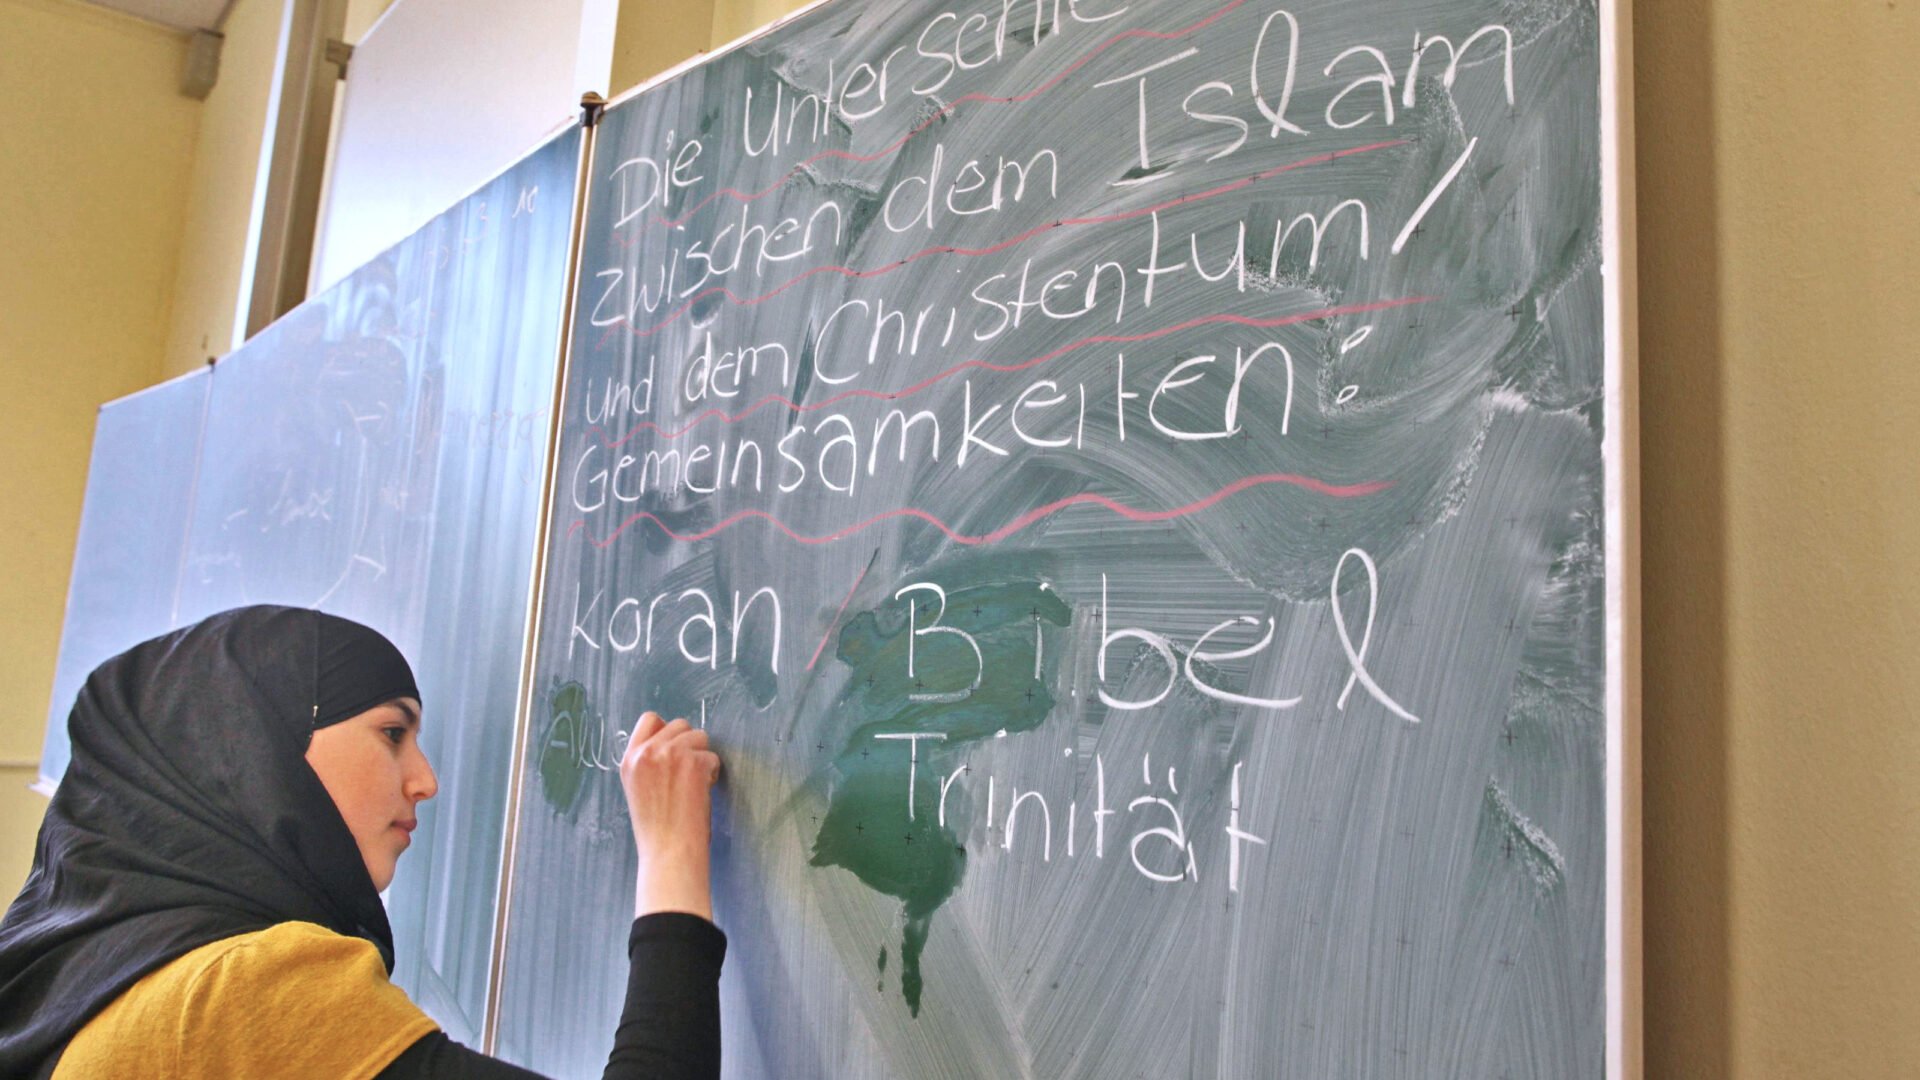 Die Unterschie
zwischen dem Islam
und dem Christentum/
Gemeinsamkeiten:
Koran / Bibel
Trinität